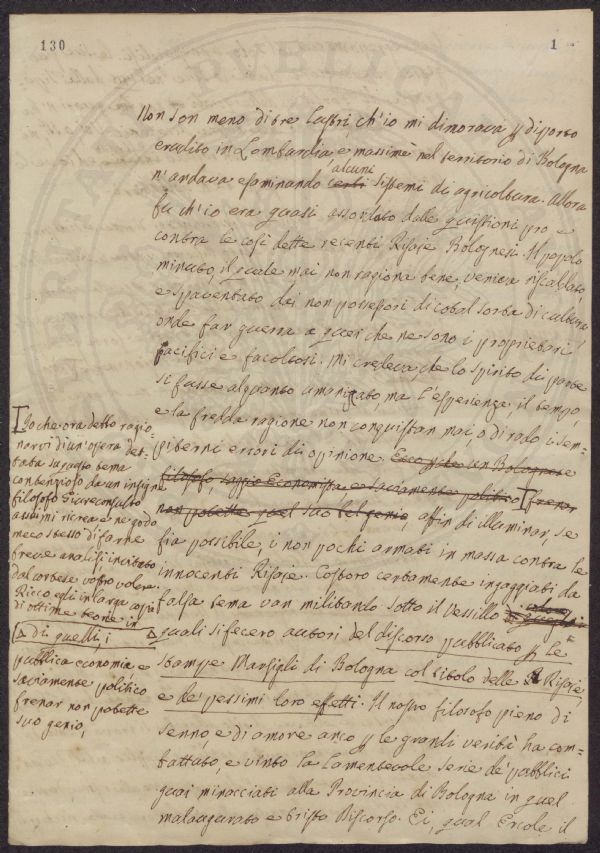 130
1
Non son meno di tre lustri ch'io mi dimorava p diporto
erudito in Lombardia, e massimè nel territorio di Bologna
alcuni
n'andava esaminando certi sistemi di agricoltura. Allora
fu ch'io era quasi assordato dalle quistioni pro e
contra le così dette recenti Risaje Bolognesi. Il popolo
minuto, il quale mai non ragiona bene, veniva riscaldato,
e spaventato dai non possessori di cotal sorta di cultura
onde far guerra a quei che ne sono i proprietari
pacifici e facoltosi. Mi credeva, che lo spirito di parte
si fusse alquanto umanizato, ma l'esperienza, il tempo,
e la fredda ragione non conquistan mai, o di rado i sem-
piterni errori di opinione. Ecco un Bolognese
filosofo, saggio Economista, e saviamente politico frenar
non potette quel suo bel genio, affin di illuminar, se
fia possibile, i non pochi armati in massa contra le
innocenti Risaje. Costoro certamente ingaggiati da
falsa tema van militando sotto il vessillo
quali si fecero autori del discorso pubblicato p le
stampe Marsigli di Bologna col titolo delle Risaje,
e de' pessimi loro effetti. Il nostro filosofo pieno di
senno, e di amore anco p le grandi verità ha com-
battuto, e vinto la lamentevole serie de' pubblici
guai minacciati alla Provincia di Bologna in quel
malaugurato e tristo Discorso. Ei, qual Ercole il
Ioche ora detto ragio-
narvi di un'opera det-
tata su questo tema
contenzioso da un insigne
filosofo Giureconsulto
assaimi ricrea, e ne godo
meco stesso di farne
breve analisi incitato
dal cortese vostro volere.
Ricco egli in larga copia
di ottime teorie in
Δ di quelli, i Δ
pubblica economia e
saviamente politico
frenar non potette
suo genio,